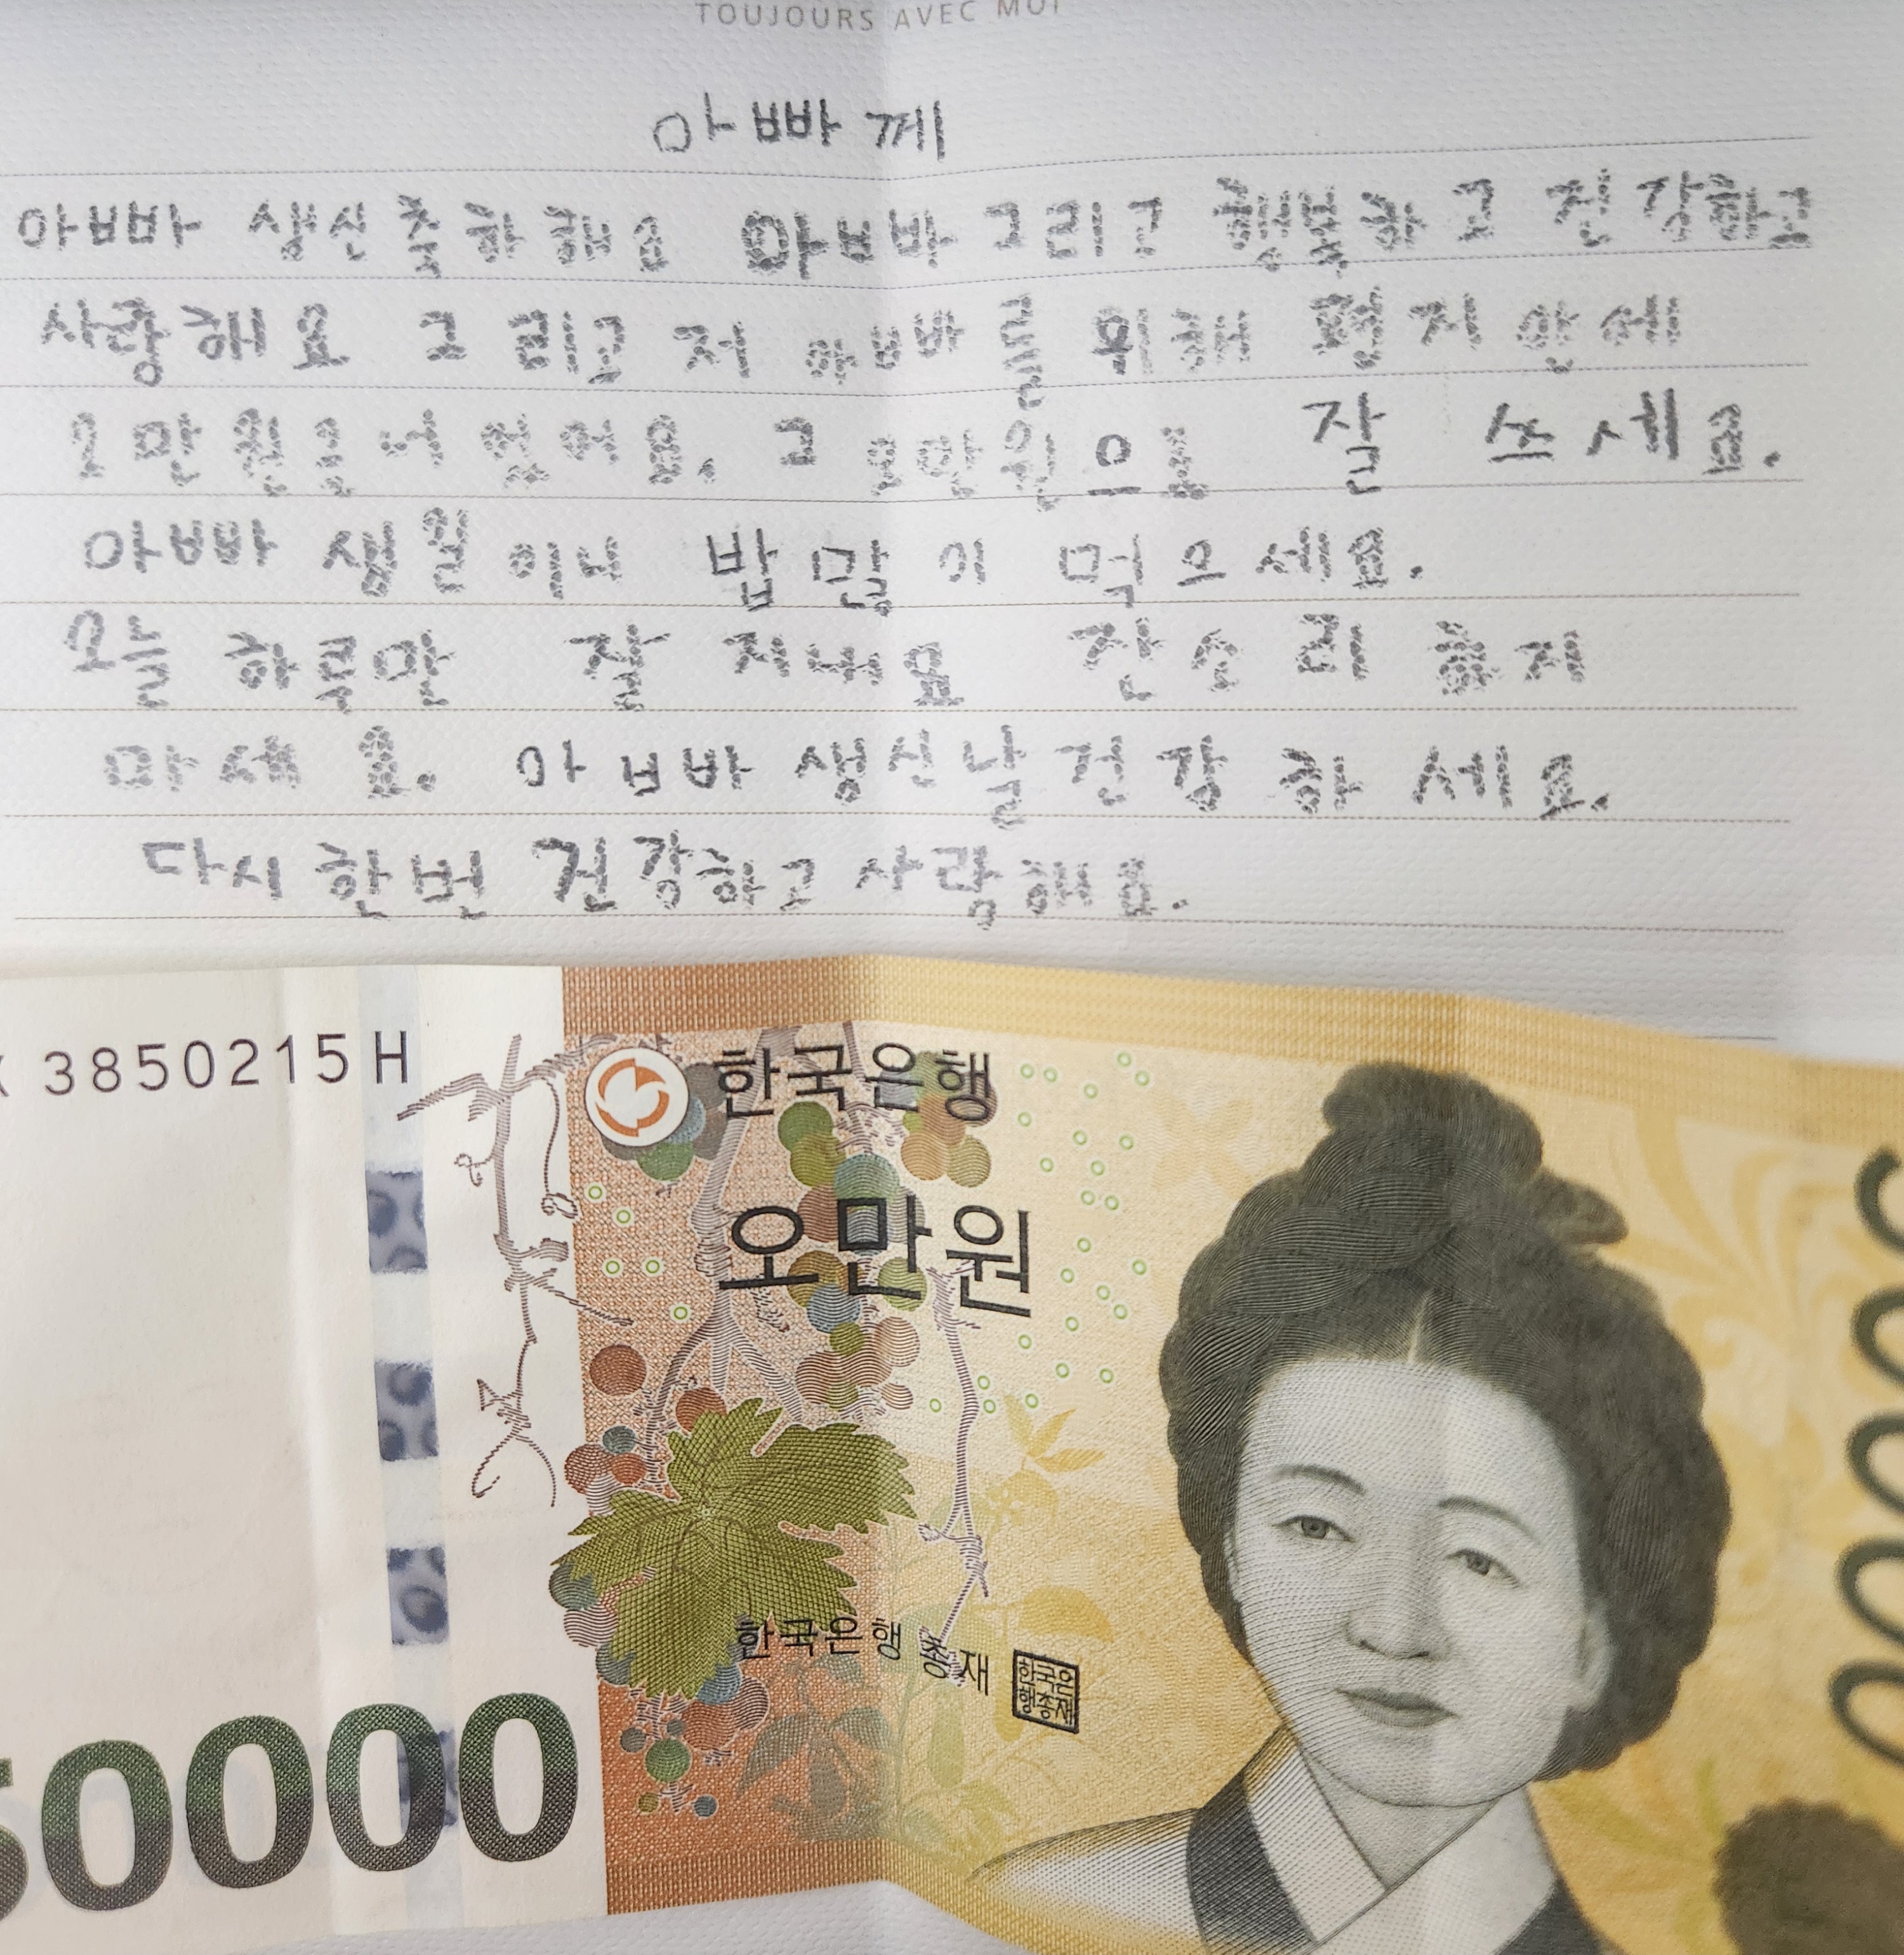 TOUJOURS AVEC MOI
아빠께
아빠 생신축하해요 아빠 그리고 행복하고 건강하고
사랑해요 그리고 저 아빠 위해 편지안에
오만원 넣어요. 그 오만원으로 잘 쓰세요.
아빠 생일에도 밥 많이 먹으세요.
올 한 해만 잘 지내요
마세요. 아빠 생신날 건강하세요.
다시한번 건강하고 사랑해요.
3850215H
한국은행
오만원
한국은행 총재
한국은행총재
50000